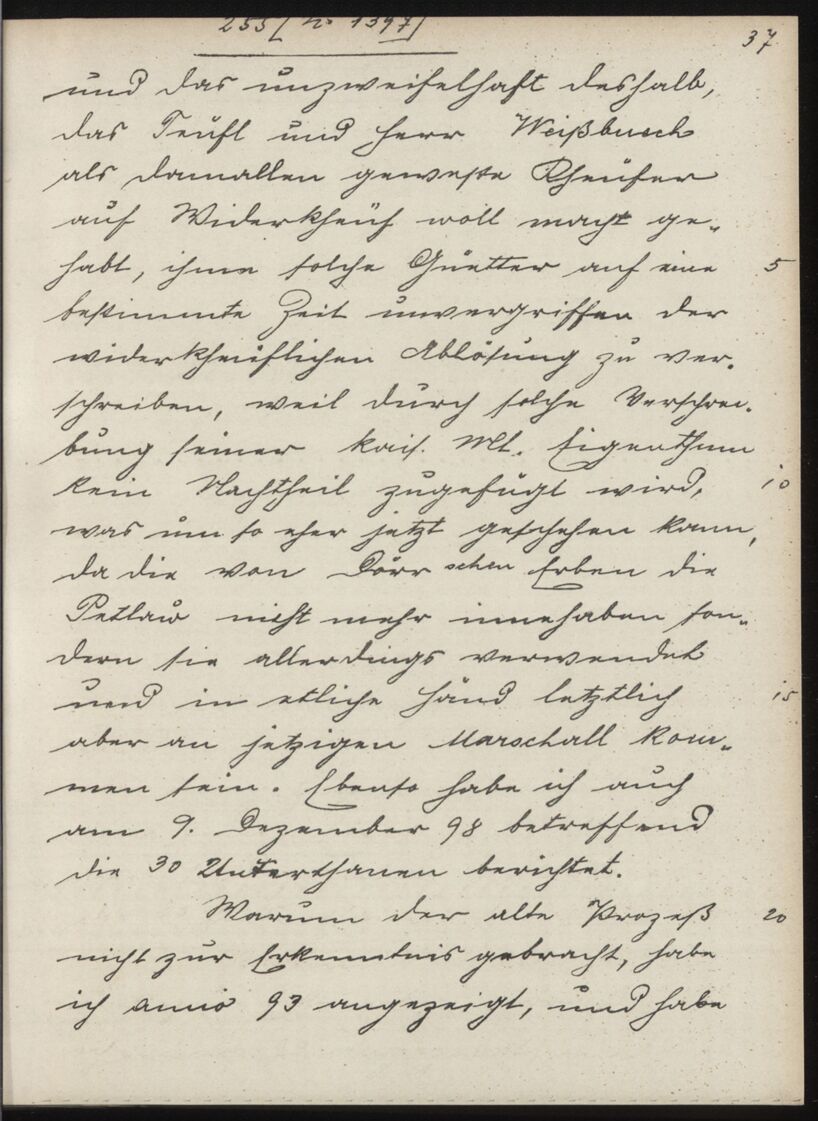 255/ No 1397/
37
und das unzweifelhaft deshalb,
das Teufl und Herr Weißbusch
als damallen geweste Kheufer
auf Widerkheuf woll macht ge-
habt, ihme solche Guetter auf eine 5
bestimmte Zeit unvergriffen der
widerkheuflichen Ablösung zu ver-
schreiben, weil durch solche Verschrei-
bung seiner kais. Mt. Eigenthum
kein Nachtheil zugefügt wird, 10
was um so eher jetzt geschehen kann,
da die von Dörrschen Erben die
Petlaw nicht mehr innehaben son-
dern sie allerdings verwendet
und in etliche Händ letztlich 15
aber an jetzigen Marschall kom-
men sein. Ebenso habe ich auch
am 9. Dezember 98 betreffend
die 30 Unterthanen berichtet.
Warum der alte Prozeß 20
nicht zur Erkenntnis gebracht, habe
ich anno 93 angezeigt, und habe